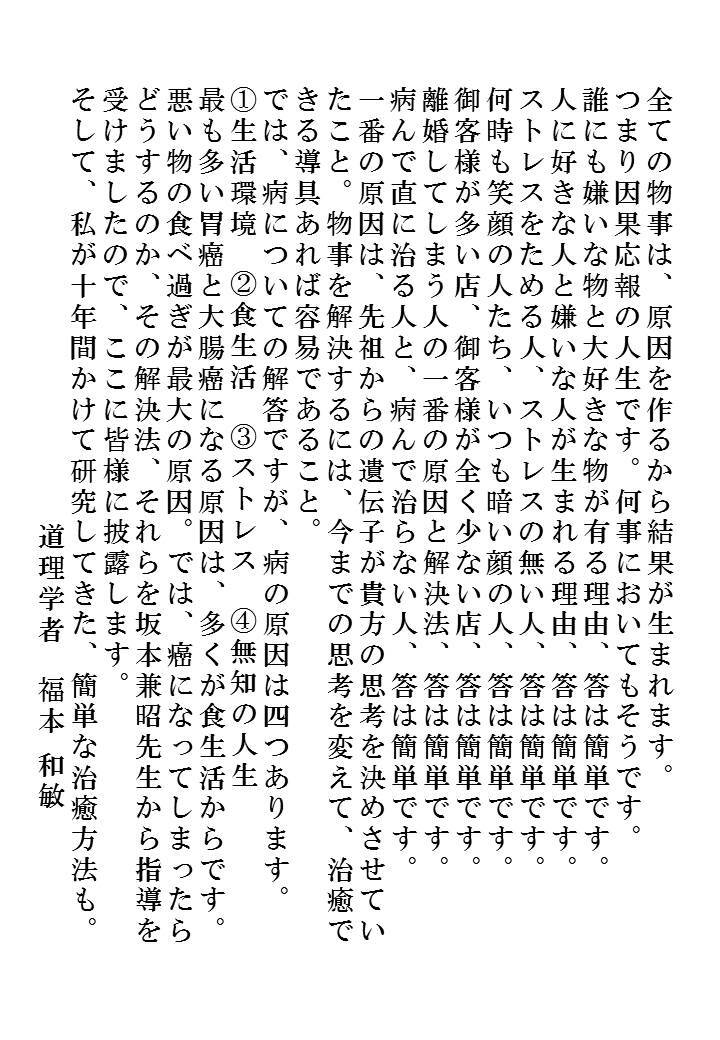 全ての物事は、原因を作るから結果が生まれます。
つまり因果応報の人生です。何事においてもそうです。
誰にも嫌いな物と大好きな物が有る理由、答は簡単です。
人に好きな人と嫌いな人が生まれる理由、答は簡単です。
ストレスをためる人、ストレスの無い人、答は簡単です。
何時も笑顔の人たち、いつも暗い顔の人、答は簡単です。
御客様が多い店、御客様が全く少ない店、答は簡単です。
離婚してしまう人の一番の原因と解決法、答は簡単です。
病んで直に治る人と、病んで治らない人、答は簡単です。
一番の原因は、先祖からの遺伝子が貴方の思考を決めさせてい
たこと。物事を解決するには、今までの思考を変えて、治癒で
きる導具あれば容易であること。
では、病についての解答ですが、病の原因は四つあります。
①生活環境 ②食生活 ③ストレス ④無知の人生
最も多い胃癌と大腸癌になる原因は、多くが食生活からです。
悪い物の食べ過ぎが最大の原因。では、癌になってしまったら
どうするのか、その解決法、それらを坂本兼昭先生から指導を
受けましたので、ここに皆様に披露します。
そして、私が十年間かけて研究してきた、簡単な治癒方法も。
道理学者 福本 和敏